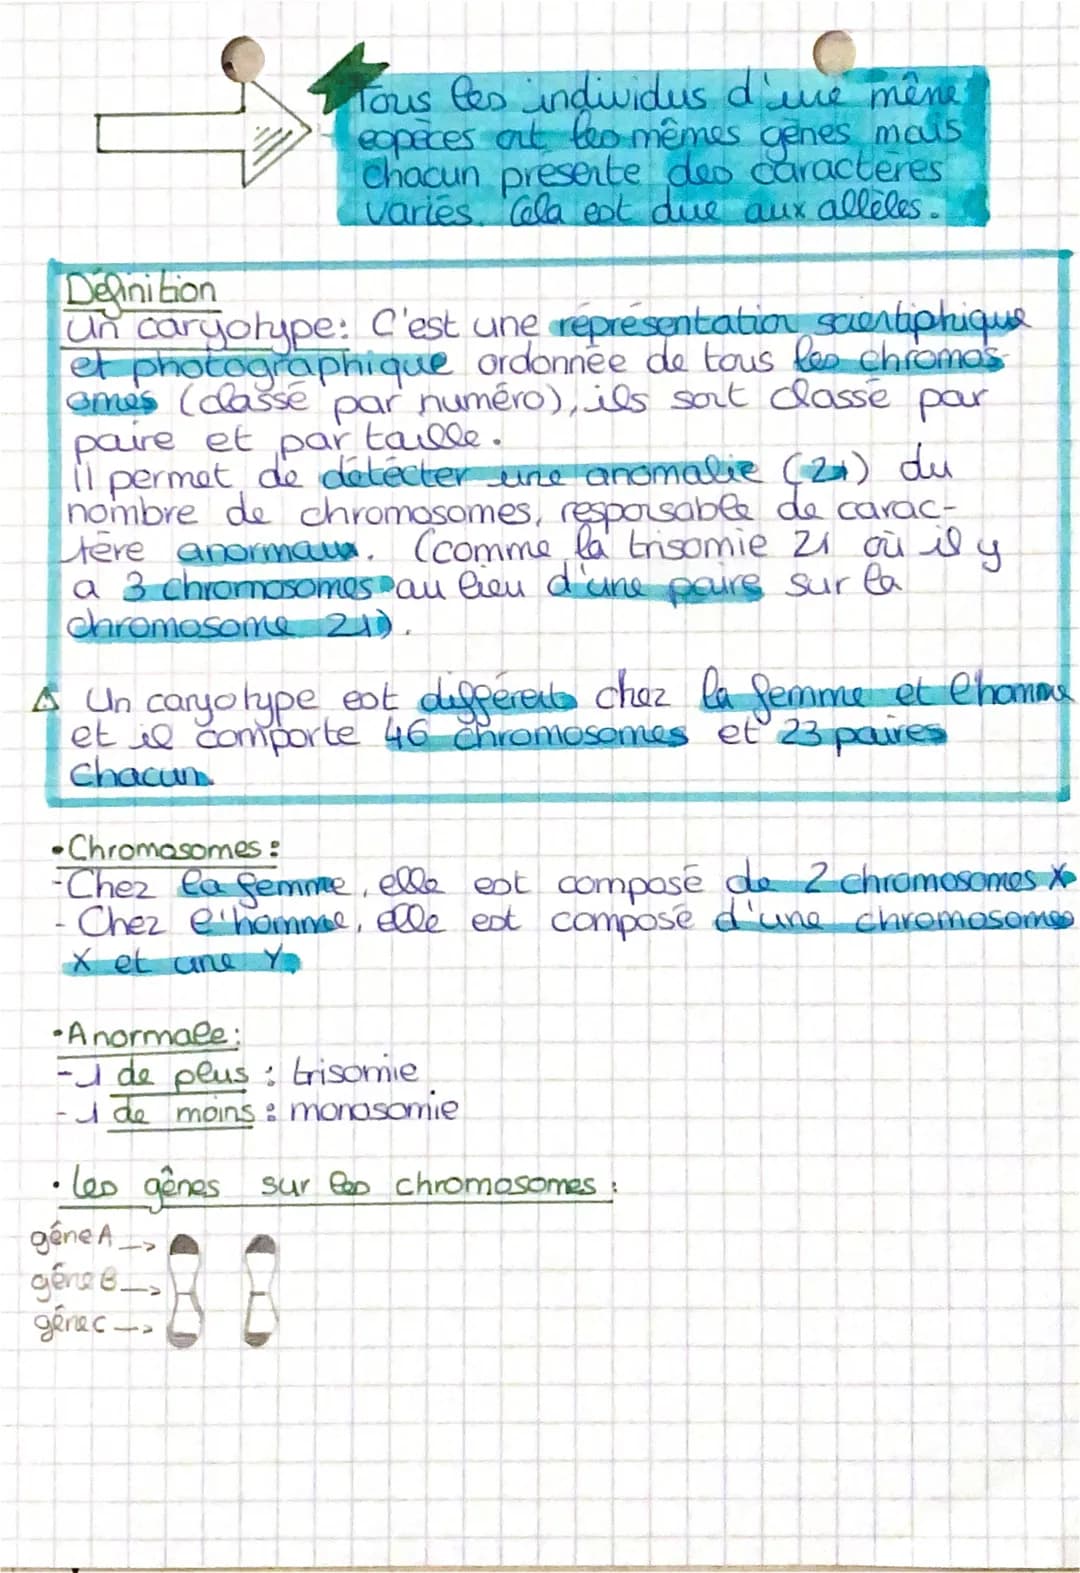 Tous les individus d'une même
espèces ont les mêmes gènes mais
chacun présente des caractères
variés. Cela est due aux allèles.
Définition
Un caryotype: C'est une représentation scientiphique
et photographique ordonnée de tous les chromos-
omes (classé par numéro), ils sont classé par
paire et par taille.
Il permet de détécter une anomalie (21) du
nombre de chromosomes, responsable de carac-
tère anormaux. (comme la trisomie 21 où il y
a 3 chromosomes au lieu d'une paire sur la
chromosome 21).
⚠ Un caryotype est différents chez la femme et l'homme
et il comporte 46 chromosomes et 23 paires
chacun
•Chromosomes :
-Chez la femme, elle est composé de 2 chromosomes X
- Chez l'homme, elle est composé d'une chromosomes
X et une Y.
•Anormale :
-1 de plus : trisomie
-1 de moins : monosomie
• les gênes sur les chromosomes :
gêne A -->
gêne B -->
gêne C -->